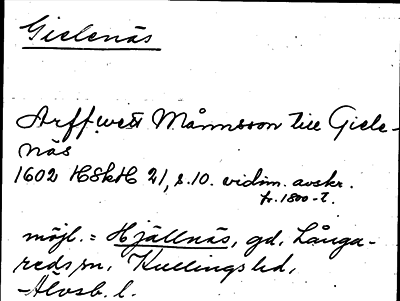 Gielenäs
Arffwett Månnsson till Giele-
näs
1602 HSkH 21, s. 10. vidim. avskr.
fr. 1800-t.
möjl. = Hjällnäs, gd, Långa-
reds sn, Kullings hd,
Älvsb. l.